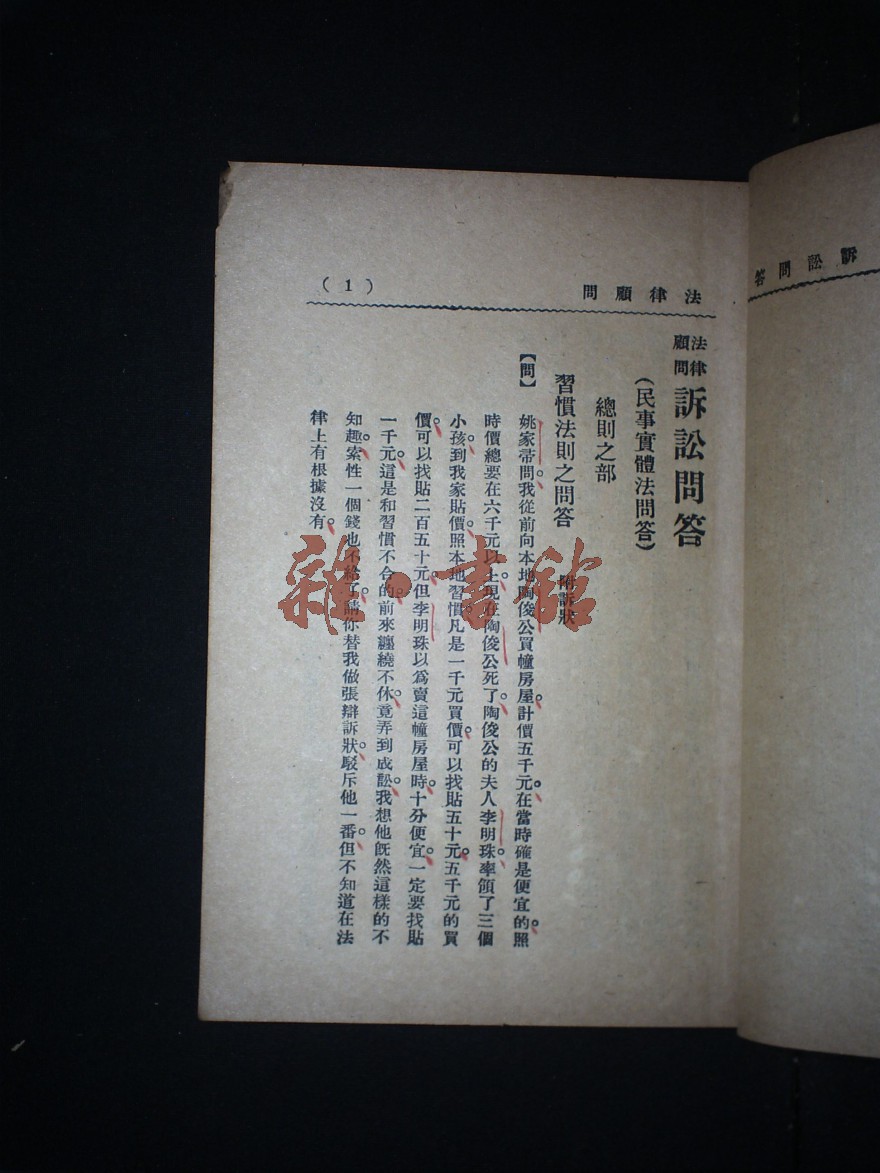 訴訟問答
法律顧問
(1)
法律顧問
訴訟問答
(民事實體法問答)
總則之部
習慣法則之問答 附訴狀
【問】 姚家芾問。我從前向本地陶俊公買幢房屋。計價五千元。在當時確是便宜的。照
時價總要在六千元以上。現在陶俊公死了。陶俊公的夫人李明珠。率領了三個
小孩。到我家貼價。照本地習慣。凡是一千元買價。可以找貼五十元。五千元的買
價。可以找貼二百五十元。但李明珠以爲賣這幢房屋時。十分便宜。一定要找貼
一千元。這是和習慣不合的。前來纏繞不休。竟弄到成訟。我想他旣然這樣的不
知趣。索性一個錢也不給了。請你替我做張辯訴狀。駁斥他一番。但不知道在法
律上有根據沒有。
雜·書館